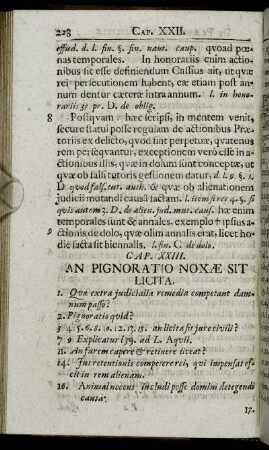 228 CAP. XXII.
effud. d. l. fin. §. fin. naut. caup. quoad pœ-
nas temporales. In honorariis enim actio-
nibus sic esse definiendum Cassius ait, ut quæ
rei persecutionem habent, eæ etiam post an-
num dentur cæteræ intra annum. l. in hono-
rariis 35 pr. D. de oblig.
8 Postquam hæc scripsi, in mentem venit,
secure statui posse regulam de actionibus Præto-
riis ex delicto, quod sint perpetuæ, quatenus
rem persequantur, exceptionem vero esse in a-
ctionibus illis, quæ in dolum sunt conceptæ, ut
quæ ob falsi tutoris gestionem datur, d. l. 9 §. 1
D quod fals. tut. auth. & quæ ob alienationem
judicii mutandi causâ factam. l. item si res 4. §. si
quis autem 3. D. de alien. jud. mut. caus. hæ enim
temporales sunt & annales, exemplo ipsius a-
9 ctionis de dolo, quæ olim annalis erat, licet ho-
die facta sit biennalis. l. fin. C de dolo.
CAP. XXIII.
AN PIGNORATIO NOXÆ SIT
LICITA.
1. Quæ extra judicialia remedia competant dam-
num passo?
2. Pignoratio quid?
3 4. 5. 6. 8. 10. 12. 13. 15. an licita sit jure civili?
7 9 Explicatur l 39. ad L. Aquil.
11. An furem capere & retinere liceat?
14. Jus retentionis competere ei, qui impensas ef-
ficit in rem alienam.
16. Animal nocens includi posse domini detegendi
causa.
17.